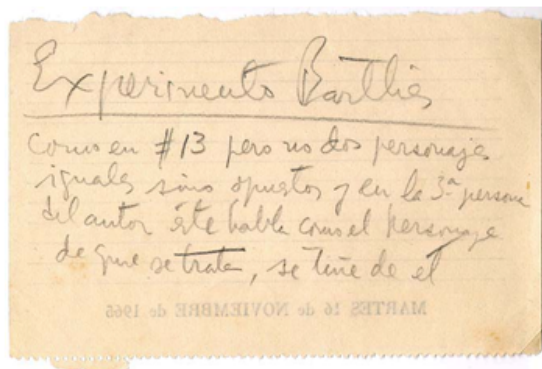 Experimento Barthes
Como en #13 pero no dos personajes
iguales sino opuestos y en la 3ª persona
del autor éste habla como el personaje
de que se trata, se tiñe de el
MARTES 16 de NOVIEMBRE de 1965